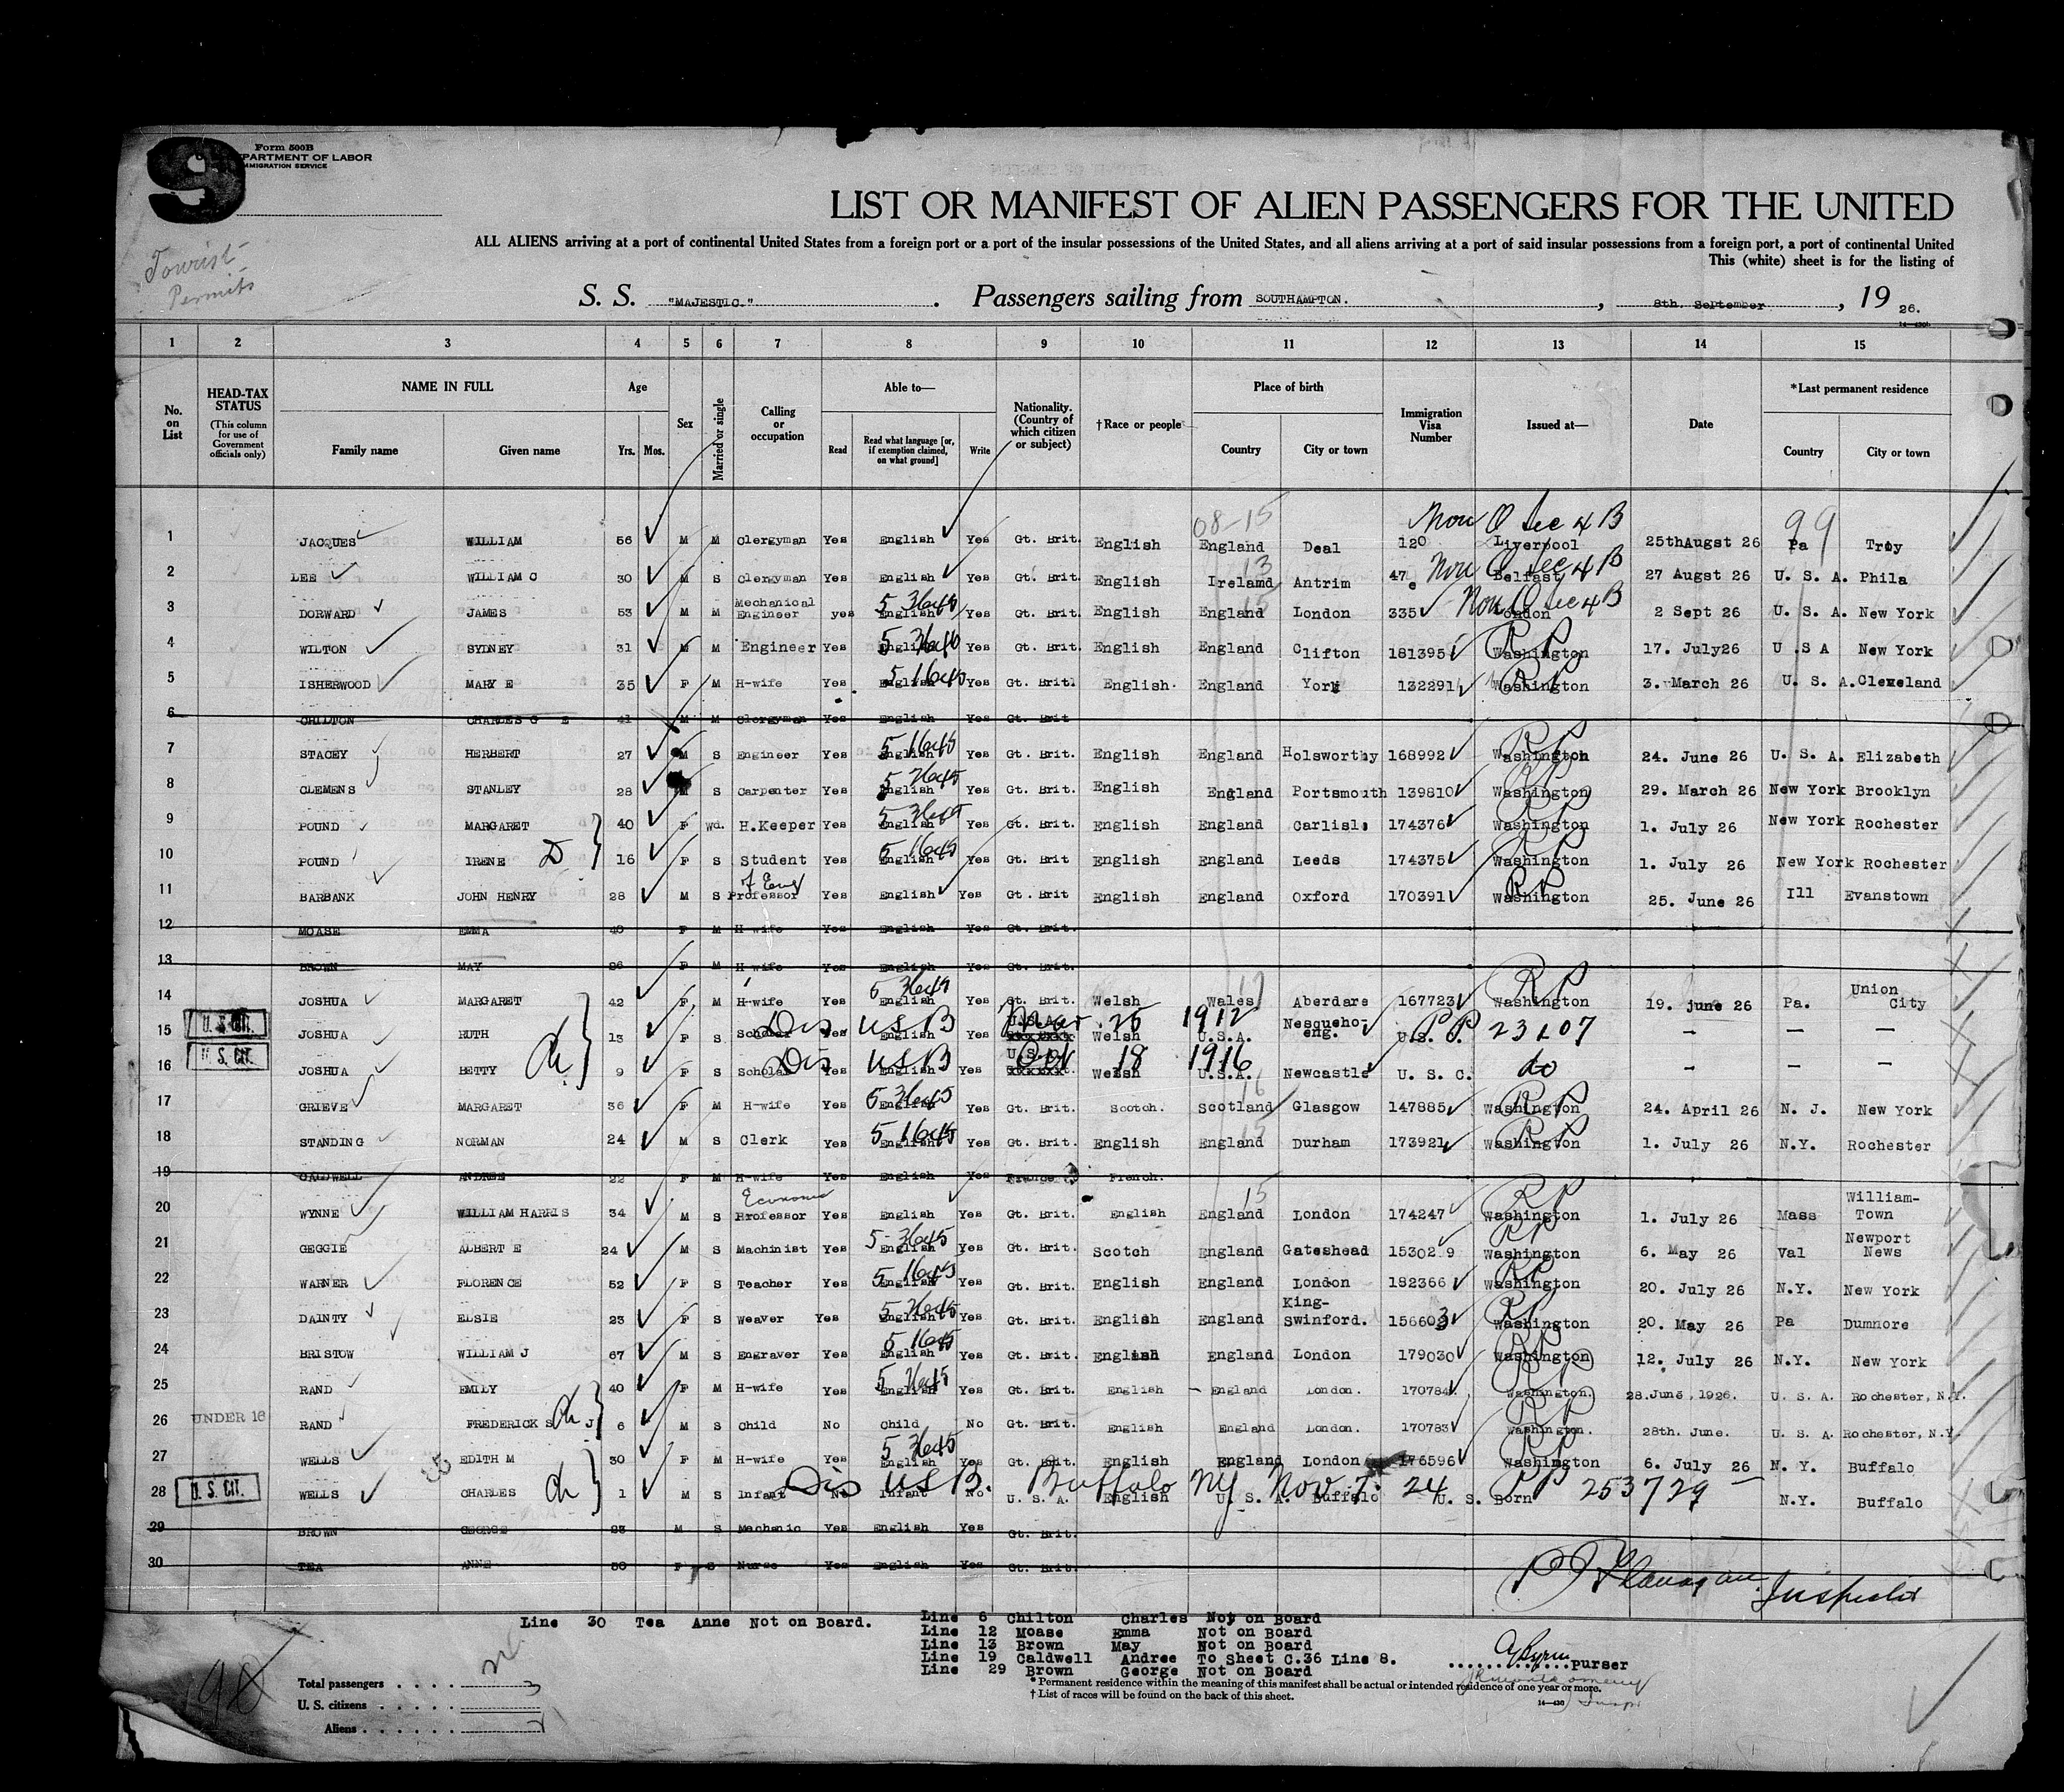 9
Form 500B
DEPARTMENT OF LABOR
IMMIGRATION SERVICE
Tourist
Permits
LIST OR MANIFEST OF ALIEN PASSENGERS FOR THE UNITED
ALL ALIENS arriving at a port of continental United States from a foreign port or a port of the insular possessions of the United States, and all aliens arriving at a port of said insular possessions from a foreign port, a port of continental United
This (white) sheet is for the listing of
S. S. "MAJESTIC." Passengers sailing from SOUTHAMPTON. , 8th. September , 19 26.
1 2 3 4 5 6 7 8 9 10 11 12 13 14 15
No. on List HEAD-TAX STATUS (This column for use of Government officials only) NAME IN FULL Family name Given name Age Yrs. Mos. Sex Married or single Calling or occupation Able to— Read Read what language [or, if exemption claimed, on what ground] Write Nationality. (Country of which citizen or subject) †Race or people Place of birth Country City or town Immigration Visa Number Issued at— Date *Last permanent residence Country City or town
08-15 Non Q Sec 4 B 99
1 JACQUES WILLIAM 56 M M Clergyman Yes English Yes Gt. Brit. English England Deal 120 Liverpool 25thAugst 26 Pa Troy
13 Non Q Sec 4 B
2 LEE WILLIAM C 30 M S Clergyman Yes English Yes Gt. Brit. English Ireland Antrim 47 Belfast 27 Augst 26 U. S. A. Phila
15 Non Q Sec 4 B
3 DORWARD JAMES 53 M M Mechanical Engineer yes English Yes Gt. Brit. English England London 335 London 2 Sept 26 U. S. A. New York
4 WILTON SYDNEY 31 M M Engineer Yes English Yes Gt. Brit. English England Clifton 181395 RP Washington 17. July26 U .S A New York
5 ISHERWOOD MARY E 35 F M H-wife Yes English Yes Gt. Brit. English. England York 132291 RP Washington 3. March 26 U. S. A. Cleveland
6 CHILTON CHARLES G E 41 M M Clergyman Yes English Yes Gt. Brit
7 STACEY HERBERT 27 M S Engineer Yes English Yes Gt. Brit. English England Holsworthy 168992 RP Washington 24. June 26 U. S. A. Elizabeth
8 CLEMENS STANLEY 28 M S Carpenter Yes English Yes Gt. Brit. English England Portsmouth 139810 RP Washington 29. March 26 New York Brooklyn
9 POUND MARGARET 40 F Wd. H.Keeper Yes English Yes Gt. Brit. English England Carlisl 174376 RP Washington 1. July 26 New York Rochester
10 POUND IRENE D 16 F S Student Yes English Yes Gt. Brit English England Leeds 174375 RP Washington 1. July 26 New York Rochester
11 BARBANK JOHN HENRY 28 M S Professor of Eng Yes English Yes Gt. Brit English England Oxford 170391 RP Washington 25. June 26 Ill Evanstown
12 MOASE EMMA 40 F M H-wife Yes English Yes Gt. Brit.
13 BROWN MAY 26 F M H-wife Yes English Yes Gt. Brit.
14 JOSHUA MARGARET 42 F M H-wife Yes English Yes Gt. Brit. Welsh Wales Aberdare 167723 RP Washington 19. june 26 Pa. Union City
15 U. S. CIT. JOSHUA RUTH 13 F S Scholar Yes English Yes U.S.A. Welsh U.S.A. Nesqueho-eng. U. S. C. — — —
Dis USB 25 1912 P.P. 23107
16 U. S. CIT. JOSHUA BETTY Ch 9 F S Scholar Yes English Yes U.S.A. Welsh U.S.A. Newcastle U. S. C. — — —
Dis USB Oct 18 1916 do
17 GRIEVE MARGARET 36 F M H-wife Yes English Yes Gt. Brit. Scotch. Scotland Glasgow 147885 RP Washington 24. April 26 N. J. New York
18 STANDING NORMAN 24 M S Clerk Yes English Yes Gt. Brit. English England Durham 173921 RP Washington 1. July 26 N.Y. Rochester
19 CALDWELL ANDREE 22 F M H-wife Yes English Yes France French.
20 WYNNE WILLIAM HARRIS 34 M S Economic Professor Yes English Yes Gt. Brit. English England London 174247 RP Washington 1. July 26 Mass William-Town
21 GEGGIE ALBERT E 24 M S Machinist Yes English Yes Gt. Brit. Scotch England Gateshead 15302 9 RP Washington 6. May 26 Val Newport News
22 WARNER FLORENCE 52 F S Teacher Yes English Yes Gt. Brit. English England London 182366 RP Washington 20. July 26 N.Y. New York
23 DAINTY ELSIE 23 F S Weaver Yes English Yes Gt. Brit. English England King-Swinford. 156603 RP Washington 20. May 26 Pa Dunmore
24 BRISTOW WILLIAM J 67 M S Engraver Yes English Yes Gt. Brit. English England London 179030 RP Washington 12. July 26 N.Y. New York
25 RAND EMILY 40 F M H-wife Yes English Yes Gt. Brit. English England London. 170784 RP Washington. 28.June,1926. U. S. A. Rochester, N.Y.
26 UNDER 16 RAND FREDERICK S J Ch 6 M S Child No Child No Gt. Brit. English England London. 170783 RP Washington. 28th. June. U. S. A. Rochester, N.Y.
27 WELLS EDITH M 30 F M H-wife Yes English Yes Gt. Brit. English England London 176596 RP Washington 6. July 26 N. Y. Buffalo
28 U. S. CIT. WELLS CHARLES Ch 1 M S Infant No Infant No U. S. A. English U. S. A. Buffalo U. S. Born N.Y. Buffalo
Dis USB. Buffalo NY Nov. 7. 24 PP 253729
29 BROWN GEORGE 23 M S Mechanic Yes English Yes Gt. Brit.
30 TEA ANNE 50 F S Nurse Yes English Yes Gt. Brit.
Inspector
Line 30 Tea Anne Not on Board.
Line 6 Chilton Charles Not on Board
Line 12 Moase Emma Not on Board
Line 13 Brown May Not on Board
Line 19 Caldwell Andree To Sheet C.36 Line 8.
Line 29 Brown George Not on Board
purser
* Permanent residence within the meaning of this manifest shall be actual or intended residence of one year or more.
† List of races will be found on the back of this sheet.
Total passengers
U. S. citizens 3
Aliens